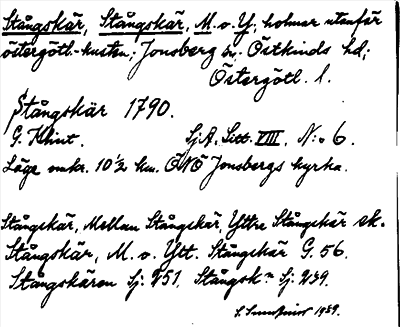 Stångskär, Stångskär, M. o. Y. holmar utanför
östergötl.-kusten; Jonsberg sn. Östkinds hd;
Östergötl. l.
Stångskär 1790.
G. Klint. SjA. Litt. VIII. N:o 6.
Läge omkr. 10 1/2 km. ÖNÖ Jonsbergs kyrka.
Stångskär, Mellan Stångskär, Yttre Stångskär ek.
Stångskär, M. o. Ytt. Stångskär G. 56.
Stångskären Sj: 251. Stångsk:n Sj: 239.
1929.